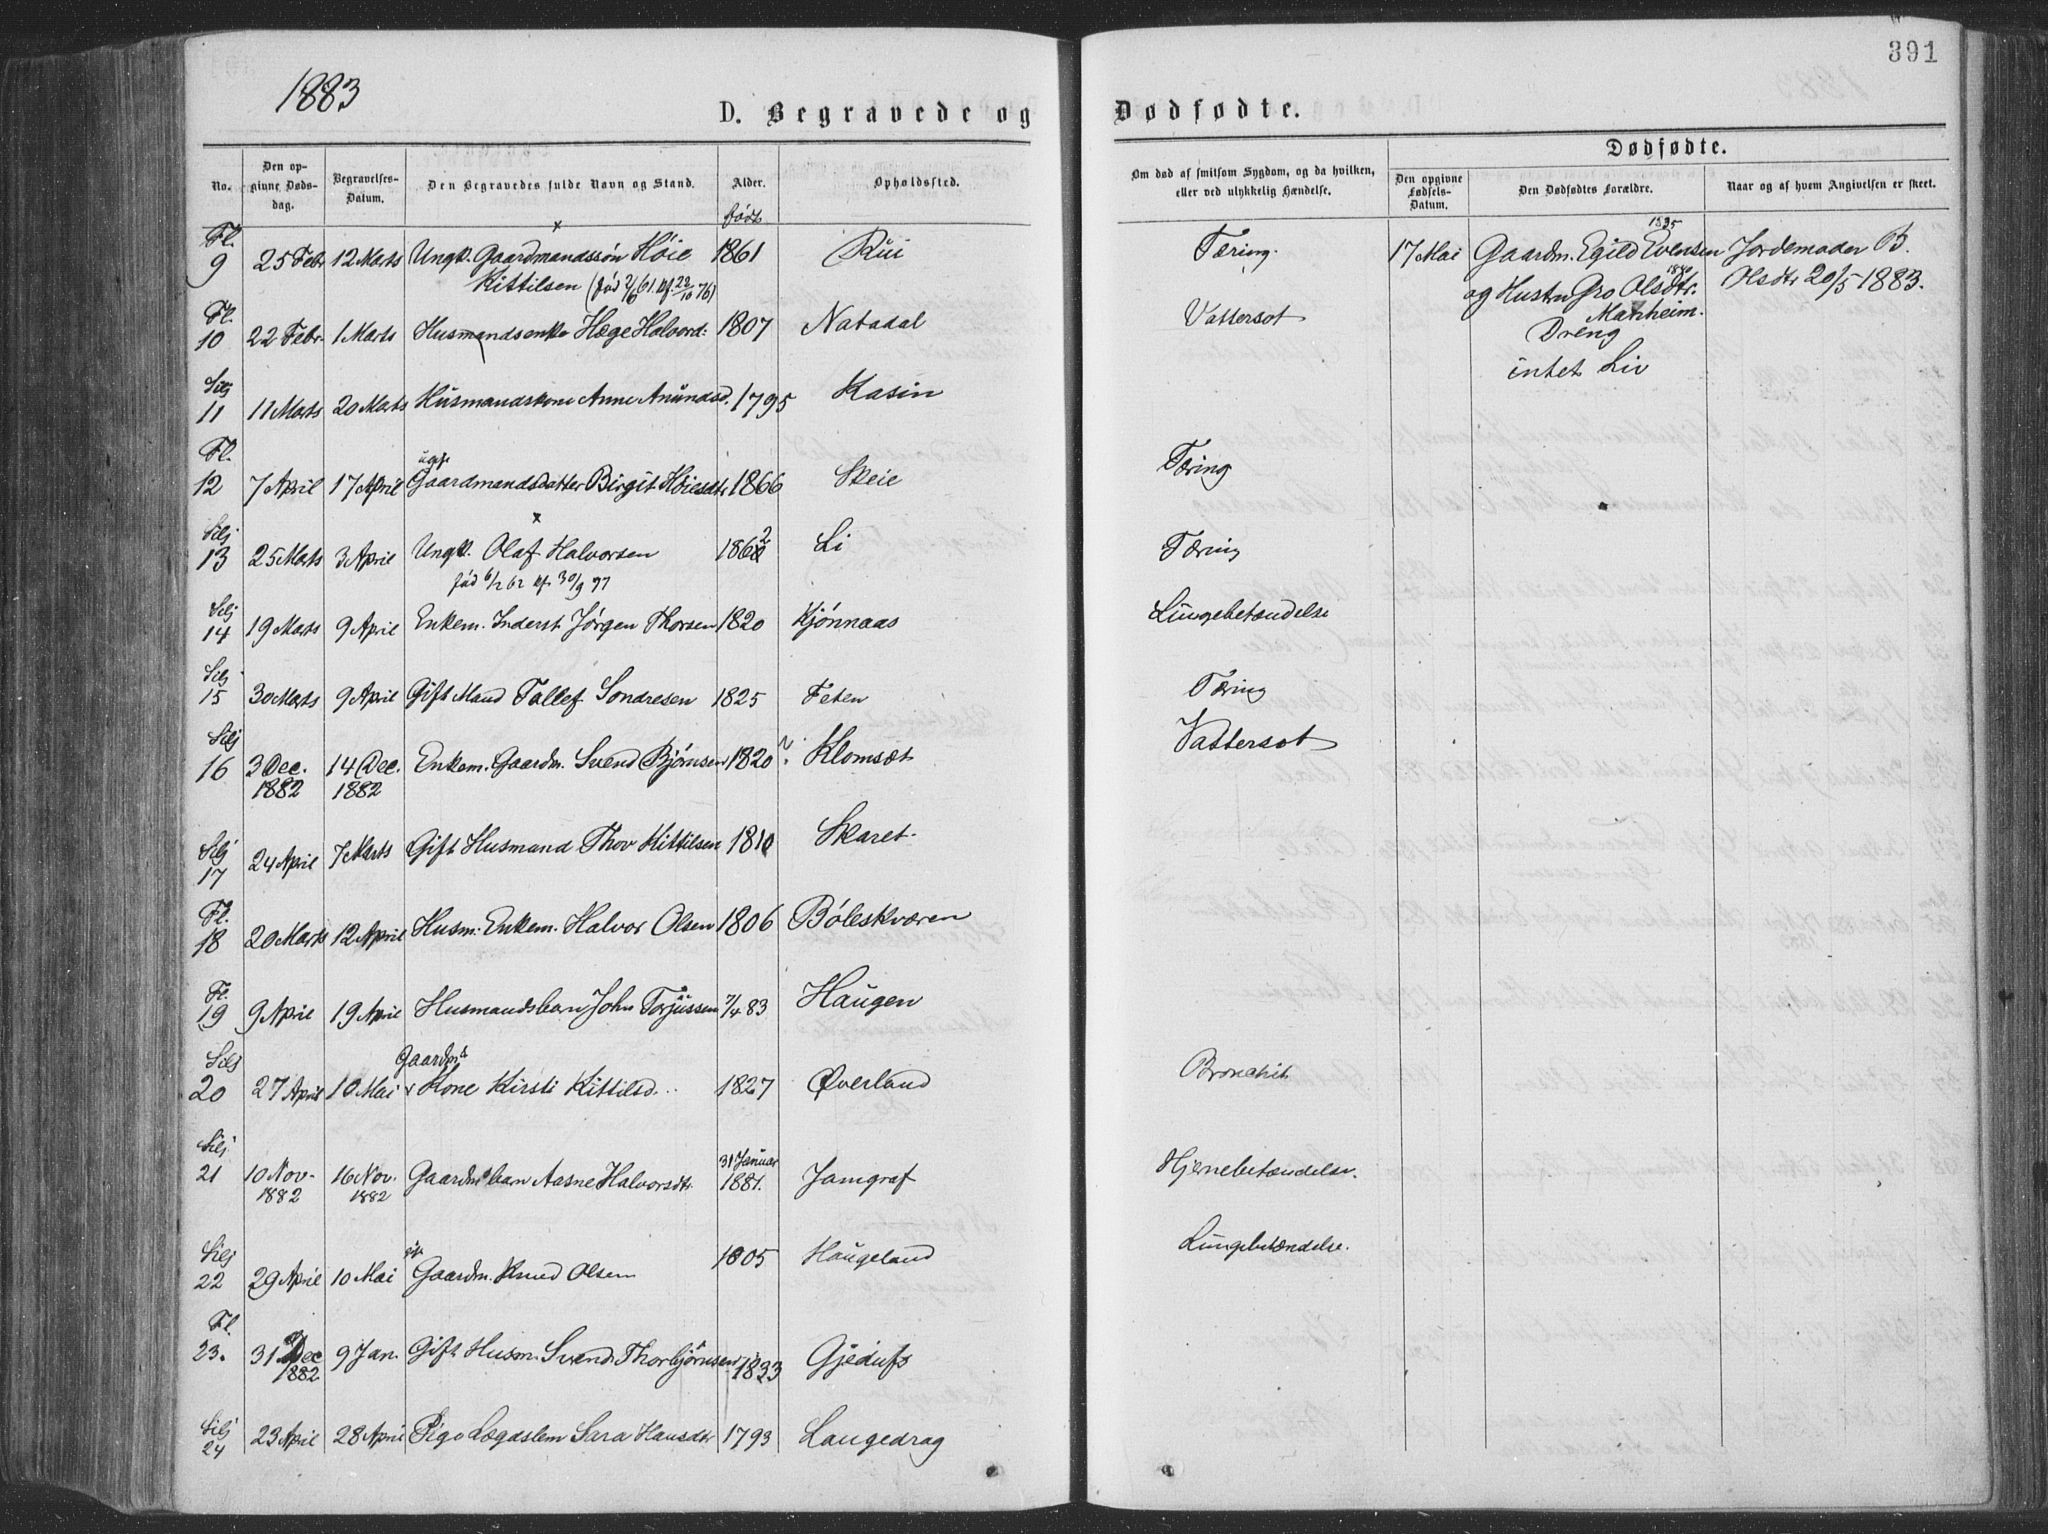 391
1883
D. Begravede og Dødfødte.
No. | Den opgivne Dødsdag. | Begravelses-Datum. | Den Begravedes fulde Navn og Stand. | Alder. | Opholdssted. | Om død af smitsom Sygdom, og da hvilken, eller ved ulykkelig Hændelse. | Dødfødte. Den opgivne Fødsels-Datum. | Den Dødfødtes Forældre. | Naar og af hvem Angivelsen er skeet.
født
Fl. 9 | 25 Febr | 12 Marts | Ungk. Gaardmandssøn Høie Kittilsen (fød 2/6 61. kf. 22/10 76) | 1861 | Rui | Tæring. | 17 Mai | Gaardm. Egild Evensen 1835 og Hustru Gro Olsdtr. 1840 Manheim. Dreng intet Liv | Jordemoder B. Olsdtr 20/5 1883.
Fl. 10 | 22 Febr. | 1 Marts | Husmandsenke Hæge Halvord. | 1807 | Natadal | Vattersot
Silj 11 | 11 Marts | 20 Marts | Husmandskone Anne Anundsd. | 1795 | Kasin
Fl. 12 | 7 April | 17 April | ugift Gaardmandsdatter Birgit Høiesdtr | 1866 | Skeie | Tæring
Silj 13 | 25 Marts | 3 April | Ungk. Olaf Halvorsen fød 6/2 62 kf. 30/9 77 | 1862 | Li | Tæring
Silj 14 | 19 Marts | 9 April | Enkem. Inderst Jørgen Thorsen | 1820 | Kjønnaas | Lungebetændelse
Silj 15 | 30 Marts | 9 April | Gift Mand Tallef Sondresen | 1825 | Feten | Tæring
Silj 16 | 3 Dec. 1882 | 14 Dec. 1882 | Enkem. Gaardm. Svend Bjørnsen | 1820? | Klomsæt | Vattersot
Silj 17 | 24 April | 7 Marts | Gift Husmand Thov Kittilsen | 1810 | Skaret.
Fl. 18 | 20 Marts | 12 April | Husm. Enkem. Halvor Olsen | 1806 | Bøleskværen
Fl. 19 | 9 April | 19 April | Husmandsbarn John Torjussen | 7/4 83 | Haugen
Silj 20 | 27 April | 10 Mai | Gaardms Kone Kirsti Kittilsd. | 1827 | Øverland | Bronchit
Silj 21 | 10 Nov. 1882 | 16 Nov. 1882 | Gaardms barn Aasne Halvorsdtr | 31 Januar 1881. | Jamgraf | Hjernebetændelse.
Silj 22 | 29 April | 10 Mai | gift Gaardm. Knud Olsen | 1805 | Haugeland | Lungebetændelse.
Fl. 23. | 31 Dec 1882 | 9 Jan. | Gift Husm. Svend Thorbjørnsen | 1833 | Gjedufs
Silj 24 | 23 April | 28 April | Pige Lægdslem Sara Hansdtr | 1793 | Langedrag